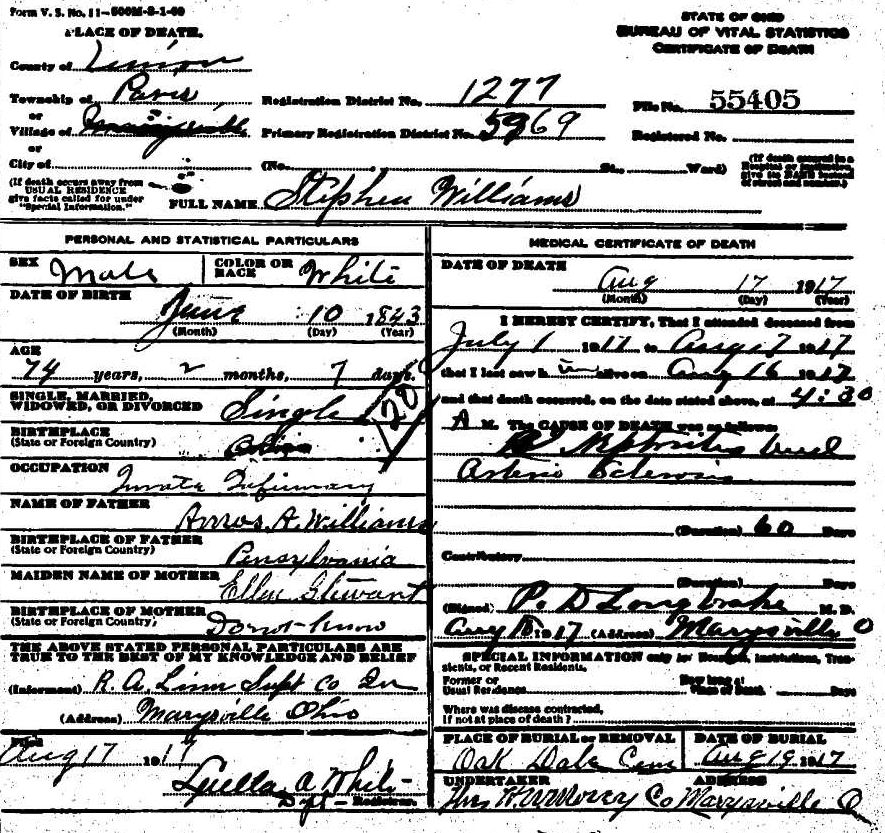 Form V. S. No. 11-500M-8-1-09
PLACE OF DEATH.
STATE OF OHIO
BUREAU OF VITAL STATISTICS
CERTIFICATE OF DEATH
County of Union
Township of Paris Registration District No. 1277 File No. 55405
or
Village of Primary Registration District No. 5969 Registered No.
or
City of (No. St., Ward) (If death occurred in a Hospital or Institution, give its NAME instead of street and number.)
(If death occurs away from USUAL RESIDENCE give facts called for under "Special Information.")
FULL NAME Stephen Williams
PERSONAL AND STATISTICAL PARTICULARS
SEX Male COLOR OR RACE White
DATE OF BIRTH
June 10 1843
(Month) (Day) (Year)
AGE
74 years, 2 months, 7 days.
SINGLE, MARRIED, WIDOWED, OR DIVORCED Single
120
BIRTHPLACE
(State or Foreign Country) Ohio
OCCUPATION
Inmate Infirmary
NAME OF FATHER
Amos A. Williams
BIRTHPLACE OF FATHER
(State or Foreign Country) Pensylvania
MAIDEN NAME OF MOTHER
Ellen Stewart
BIRTHPLACE OF MOTHER
(State or Foreign Country) Do not know
THE ABOVE STATED PERSONAL PARTICULARS ARE TRUE TO THE BEST OF MY KNOWLEDGE AND BELIEF
(Informant) R. A. Linn Supt Co
(Address) Marysville Ohio
Aug 17 1917
Luella A White
Dept- Registrar.
MEDICAL CERTIFICATE OF DEATH
DATE OF DEATH
Aug 17 1917
(Month) (Day) (Year)
I HEREBY CERTIFY, That I attended deceased from
July 1 1917 to Aug 17 1917
that I last saw h im alive on Aug 16 1917
and that death occurred, on the date stated above, at 4:30
A M. The CAUSE OF DEATH was as follows:
Nephritis and
Arterio Sclerosis
(Duration) 60 Days
Contributory
(Duration) Days
(Signed) P. D Longbrake M. D.
Aug 18 1917 (Address) Marysville O
SPECIAL INFORMATION only for Hospitals, Institutions, Transients, or Recent Residents.
Former or Usual Residence How long at Place of Death? Days
Where was disease contracted, If not at place of death?
PLACE OF BURIAL or REMOVAL DATE OF BURIAL
Oak Dale Cem Aug 19 1917
UNDERTAKER ADDRESS
Co Marysville O